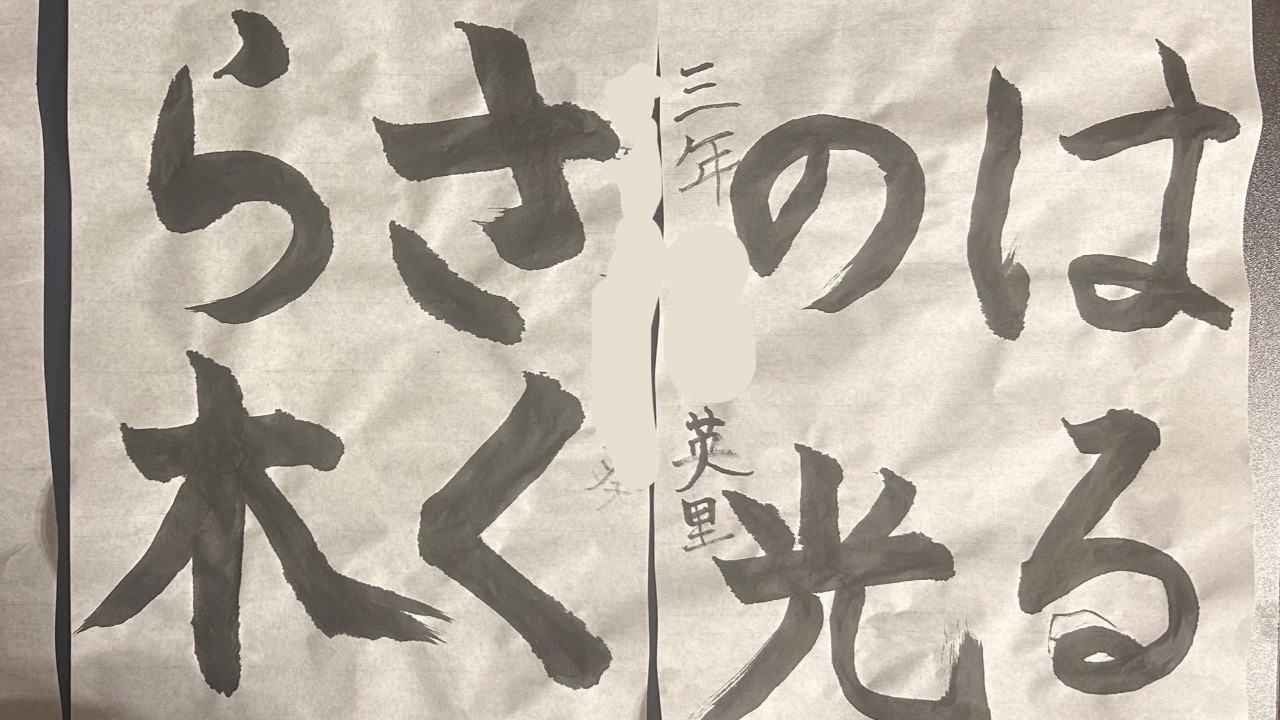 はる
の光
三年 英里
さく
ら木